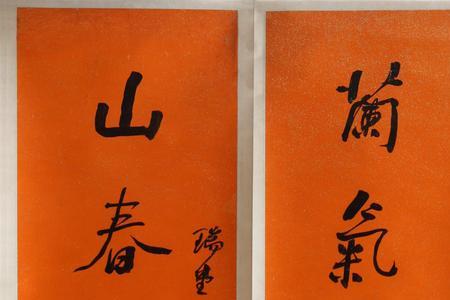 蘭氣
山春
瑞